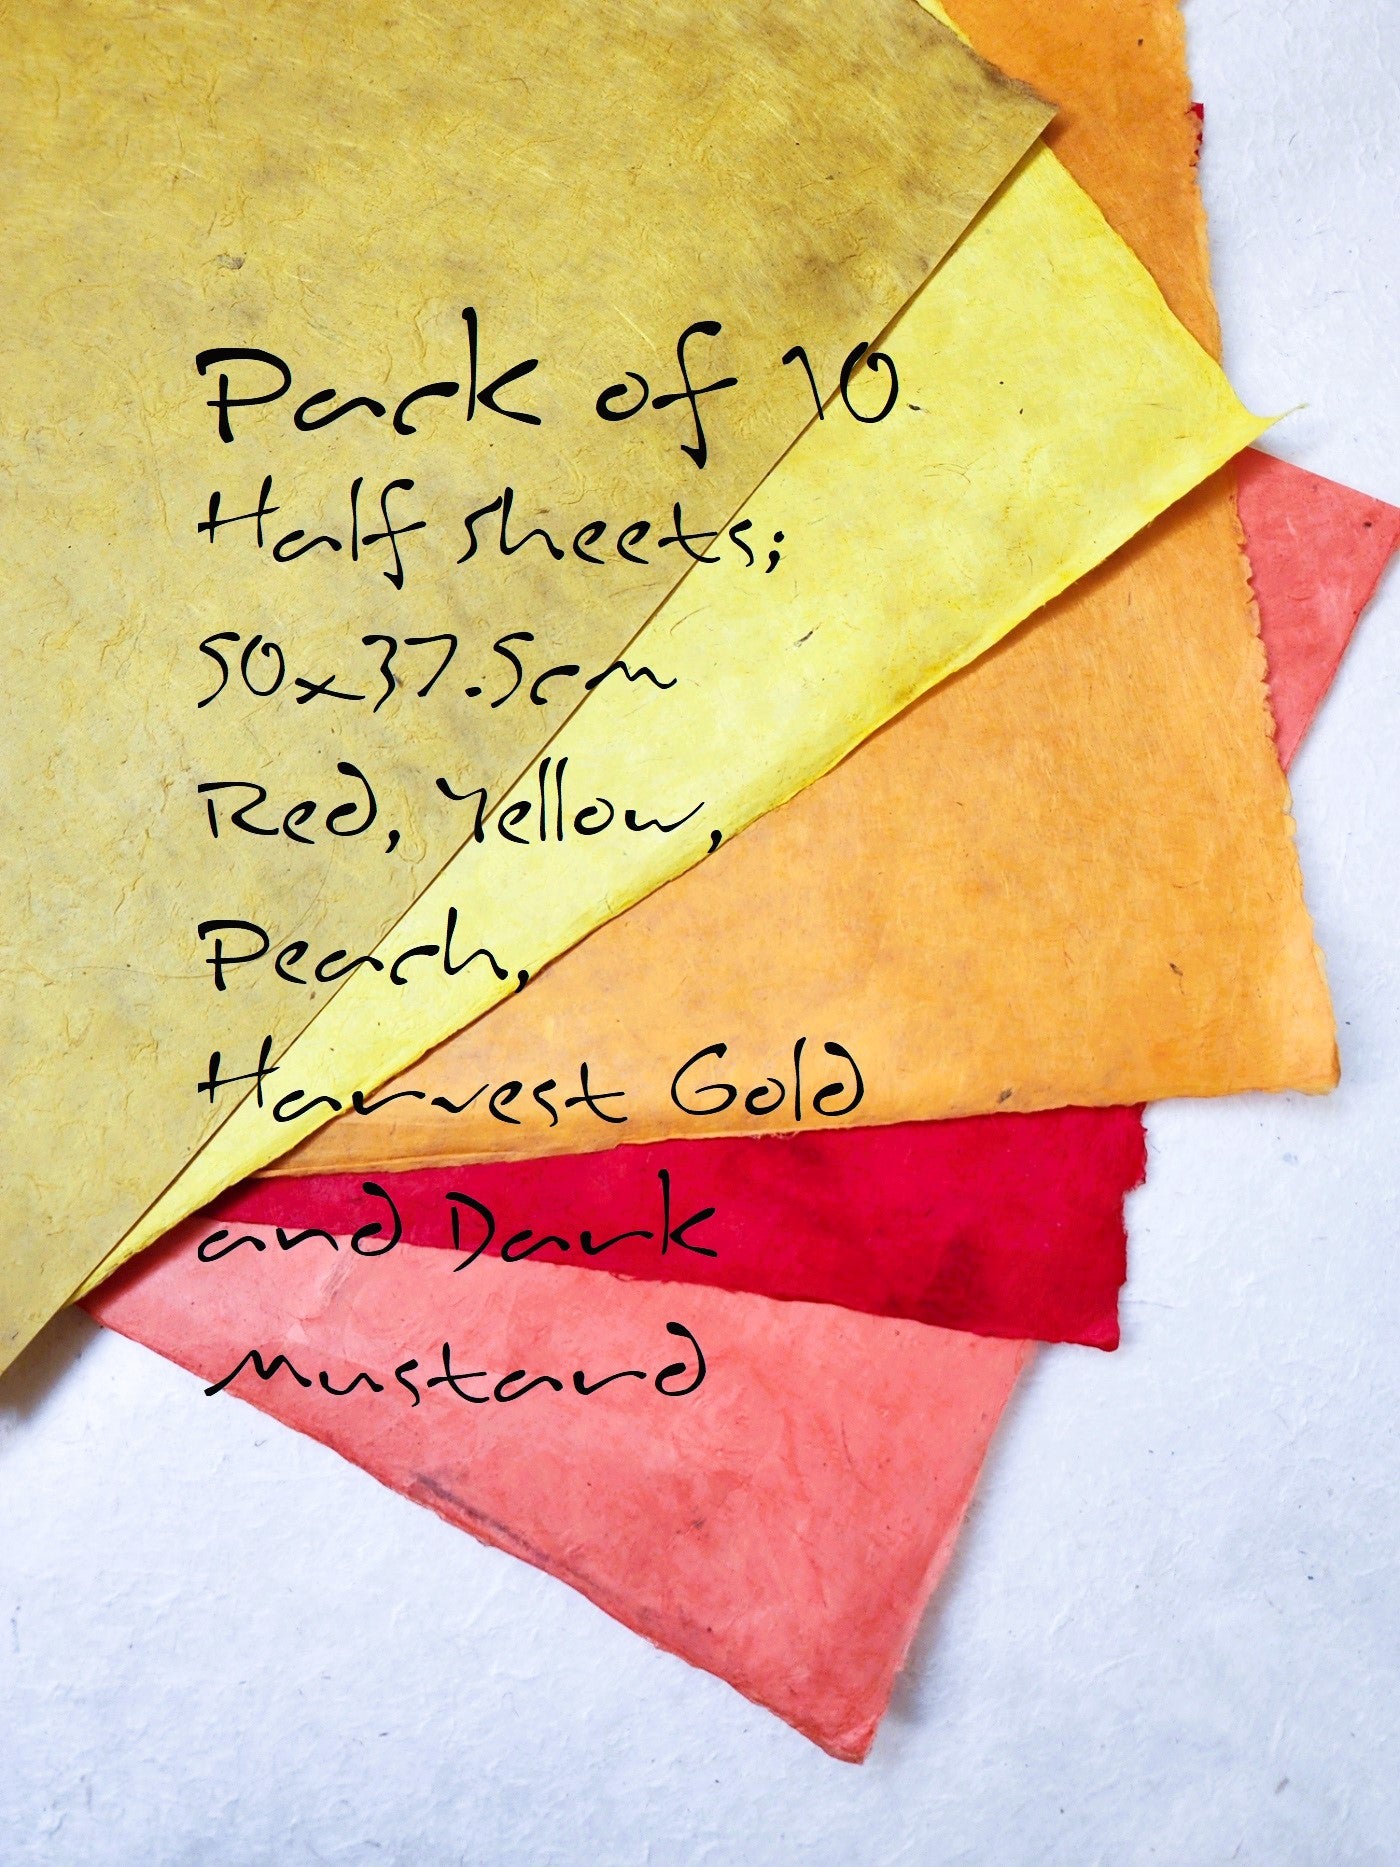 Pack of 10
Half sheets;
50x37.5cm
Red, Yellow,
Peach,
Harvest Gold
and Dark
Mustard